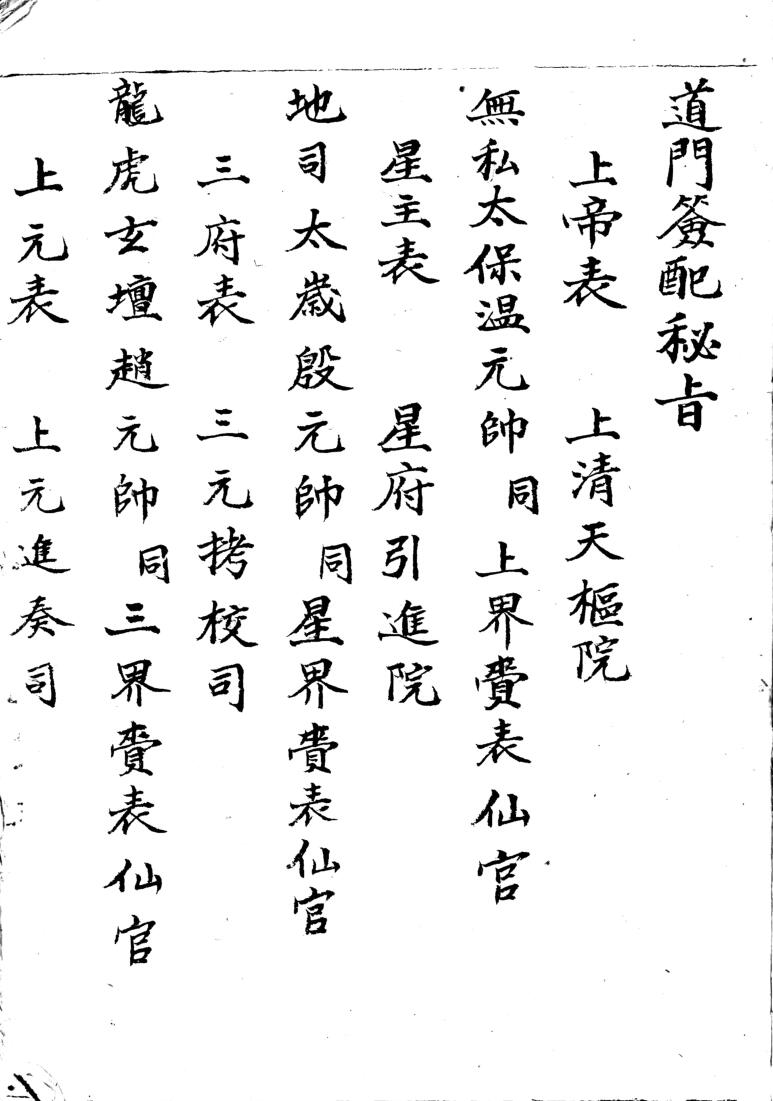 道門簽配秘旨
上帝表 上清天樞院
無私太保温元帥同上界賫表仙官
星主表 星府引進院
地司太歲殷元帥同星界賫表仙官
三府表 三元拷校司
龍虎玄壇趙元帥同三界賫表仙官
上元表 上元進奏司